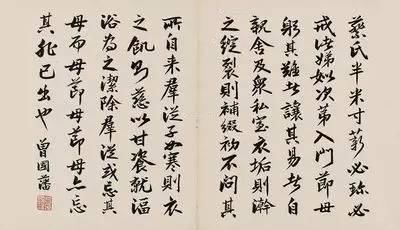 蔡氏半米寸薪必珍必
戒諸娣姒次第入門節母
躬其難者讓其易者自
親舍及衆私室衣垢則澣
之綻裂則補綴初不問其
所自来羣從子女寒則衣
之飢則慈以甘餈就湢
浴為之潔除羣從或忘其
母而母節母節母亦忘
其非己出也 曾國藩